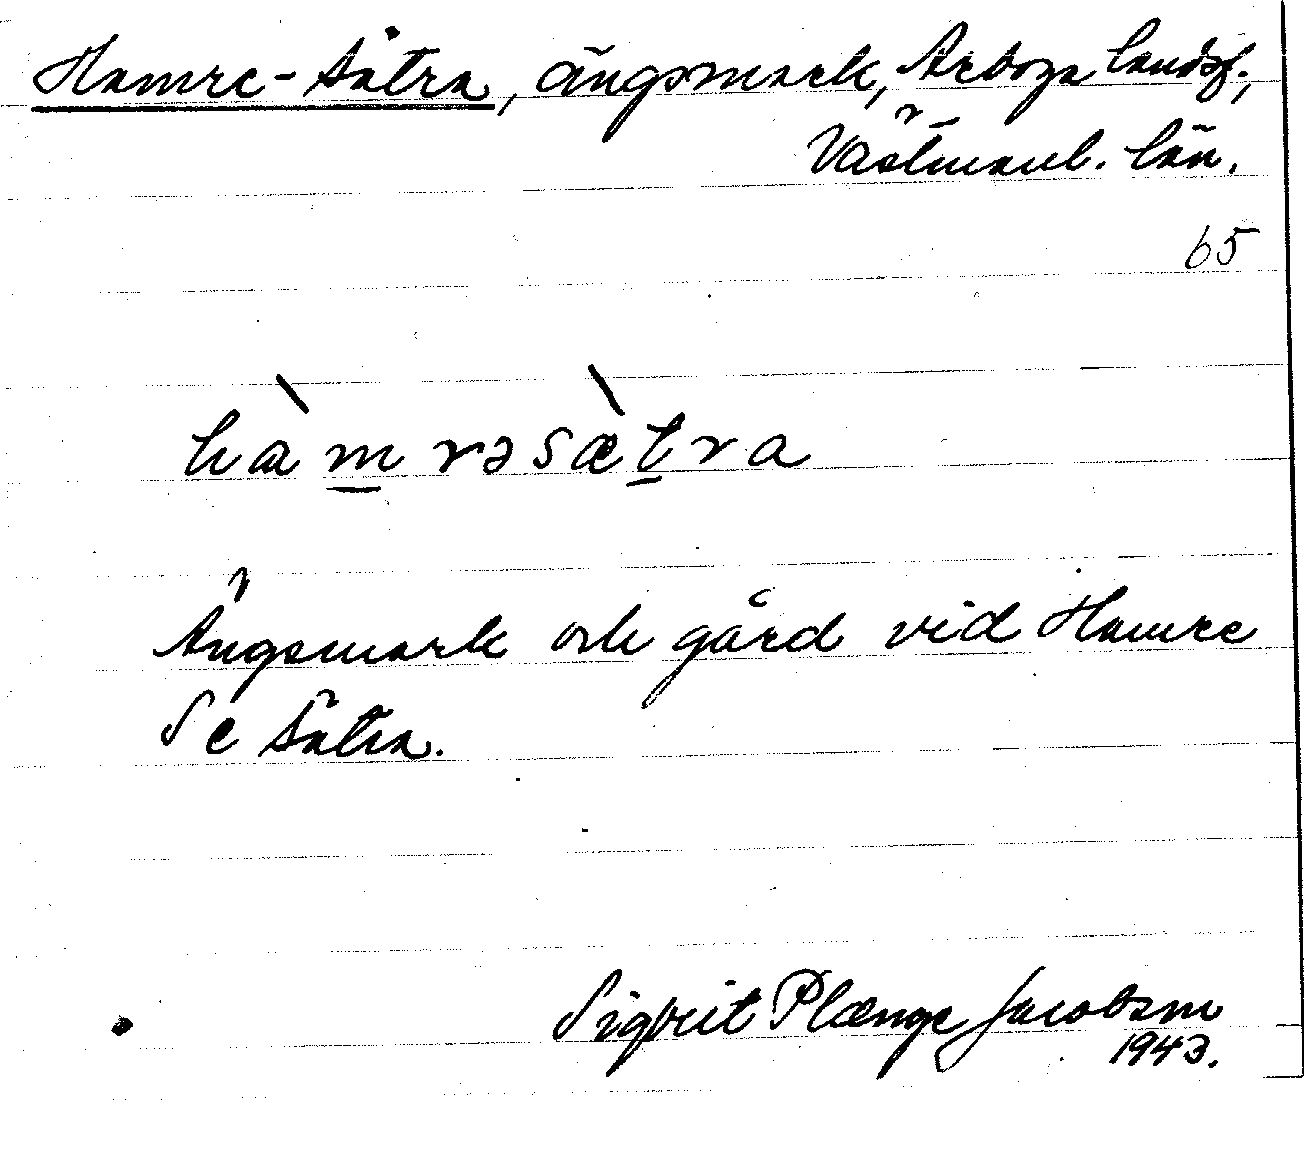 Hamre-Sätra, ängsmark, Arboga landsf.,
Västmanl. län.
65
hàm̱rəsæ̀ṯra
Ängsmark och gård vid Hamre
Se Sätra.
Sigbrit Plænge Jacobson
1943.